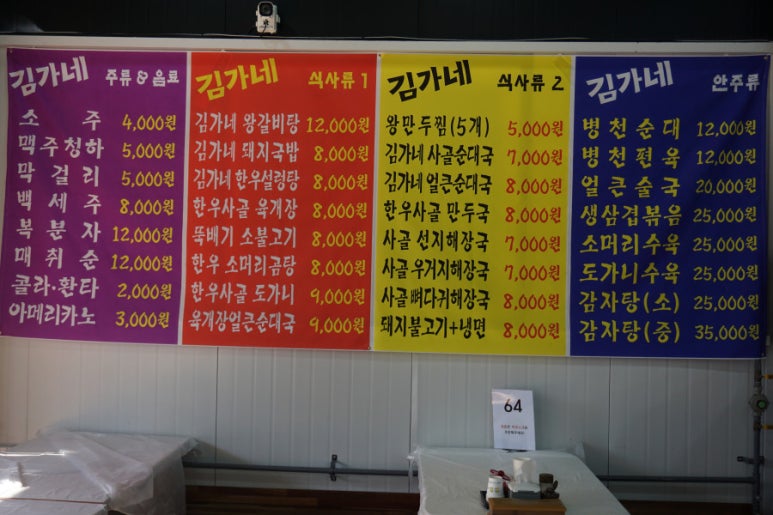 김가네 주류 & 음료
소주 4,000원
맥주청하 5,000원
막걸리 5,000원
백세주 8,000원
복분자 12,000원
매취순 12,000원
콜라·환타 2,000원
아메리카노 3,000원
김가네 식사류 1
김가네 왕갈비탕 12,000원
김가네 돼지국밥 8,000원
김가네 한우설렁탕 8,000원
한우사골 육개장 8,000원
뚝배기 소불고기 8,000원
한우 소머리곰탕 8,000원
한우사골 도가니 9,000원
육개장얼큰순대국 9,000원
김가네 식사류 2
왕만두찜(5개) 5,000원
김가네 사골순대국 7,000원
김가네 얼큰순대국 8,000원
한우사골 만두국 8,000원
사골 선지해장국 7,000원
사골 우거지해장국 7,000원
사골 뼈다귀해장국 8,000원
돼지불고기+냉면 8,000원
김가네 안주류
병천순대 12,000원
병천편육 12,000원
얼큰술국 20,000원
생삼겹볶음 25,000원
소머리수육 25,000원
도가니수육 25,000원
감자탕(소) 25,000원
감자탕(중) 35,000원
64